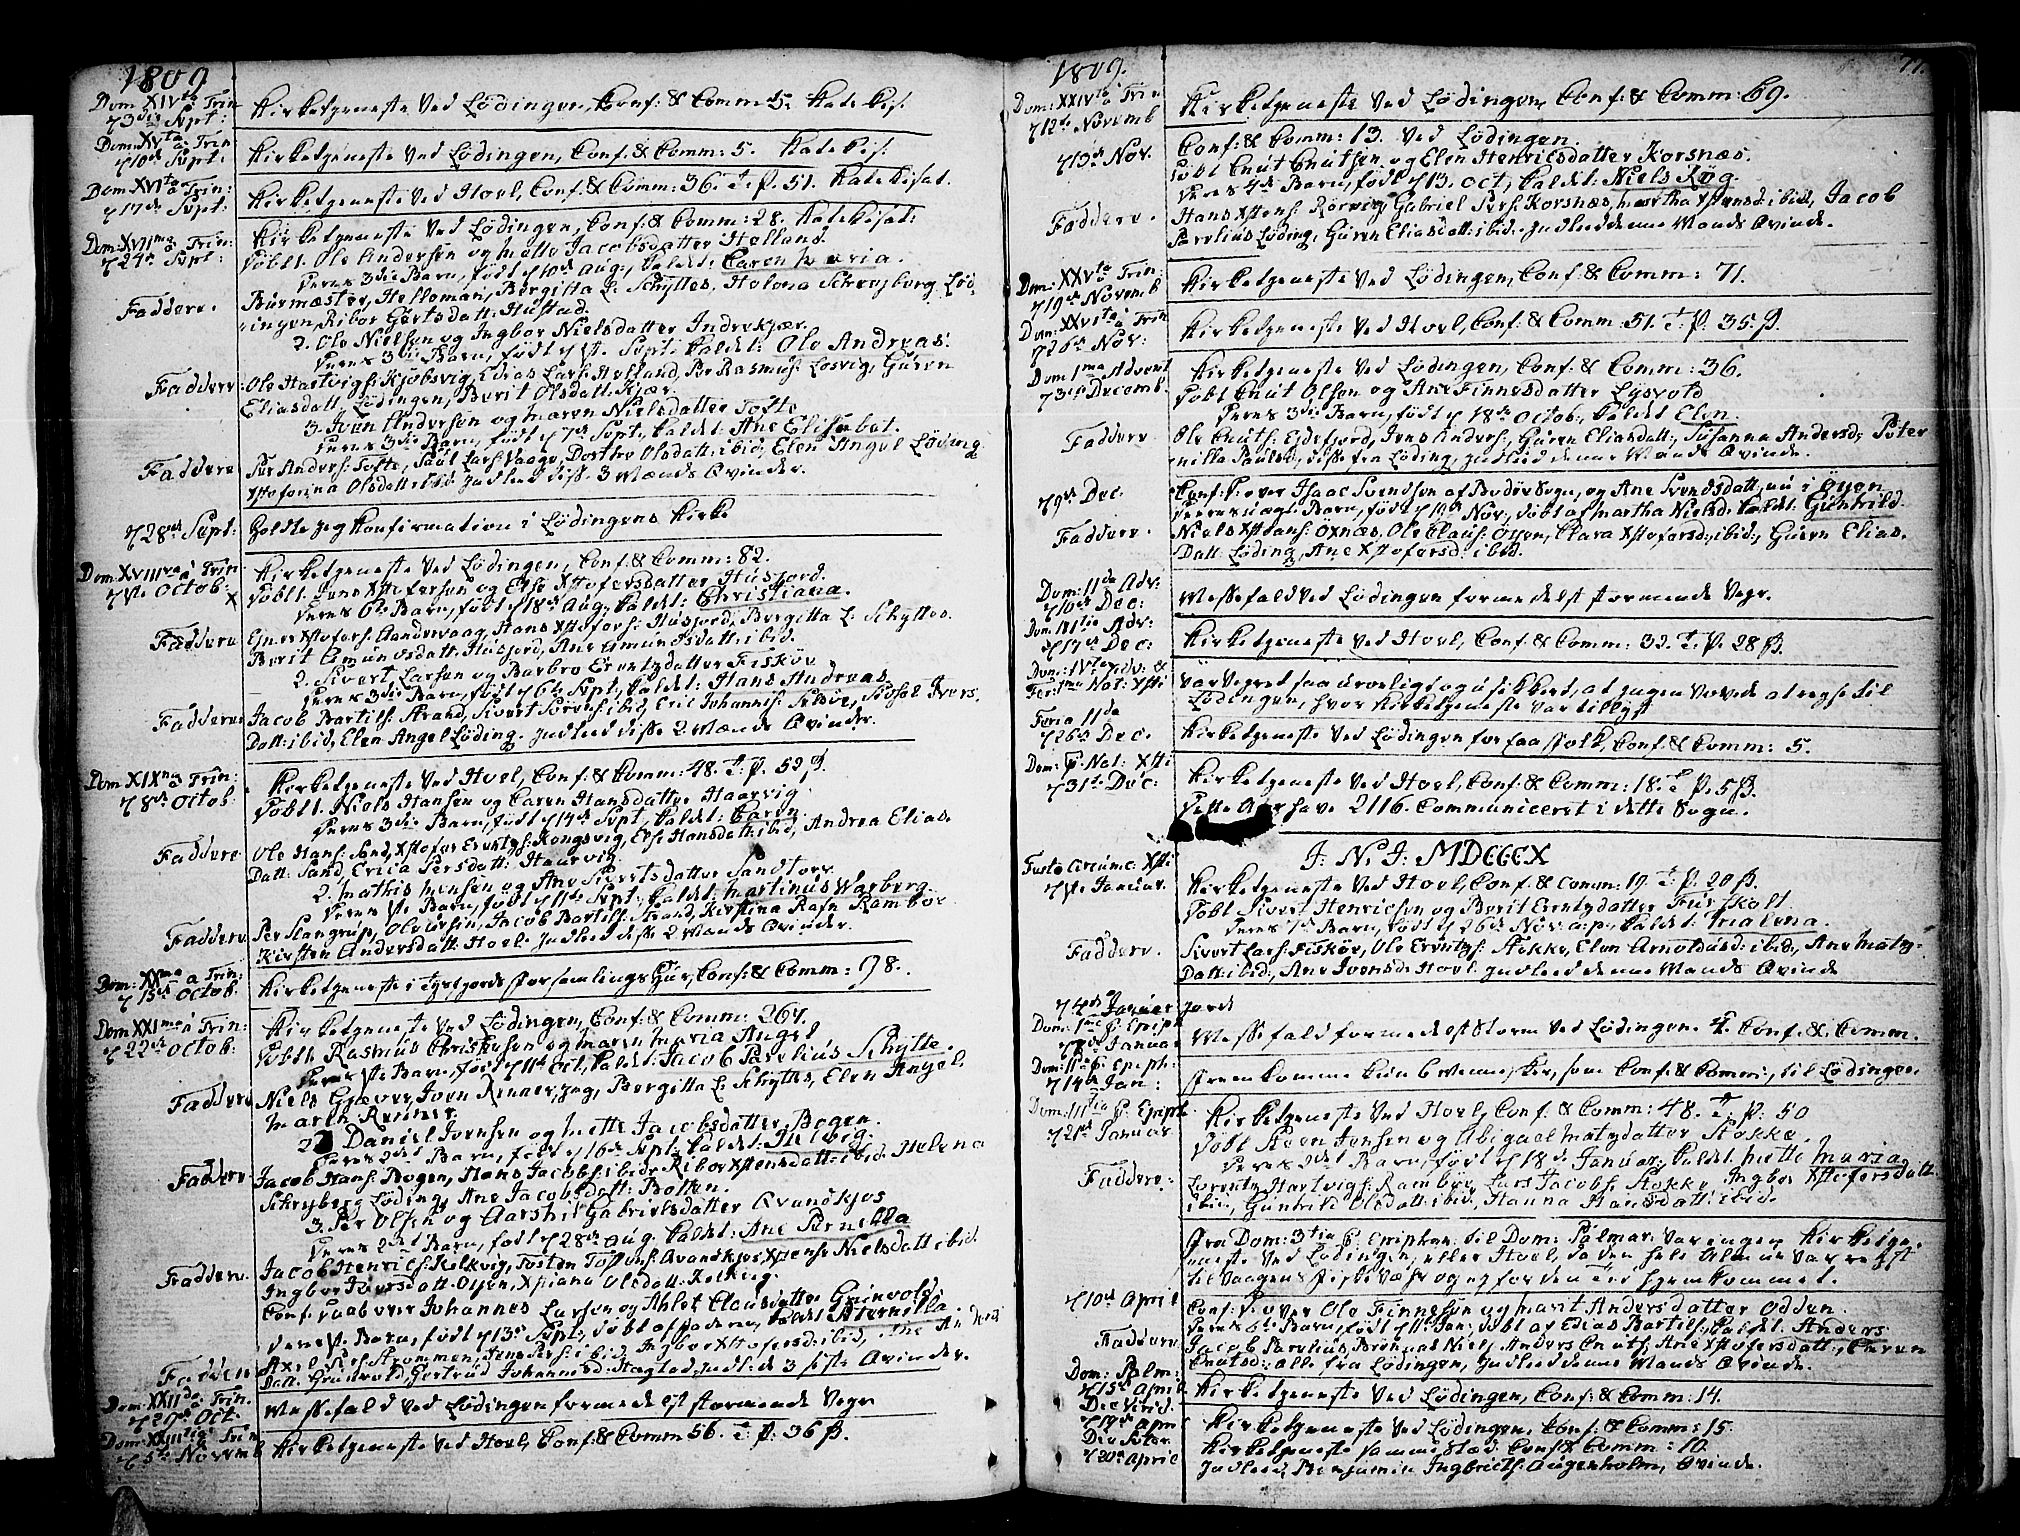 1809
Dom: XIVta a Trin
d 3die Sept:
Kirketjeneste ved Lødingen, Conf: & Comm: 5. Katekis:
Dom: XVta a Trin
d 10de Sept:
Kirketjeneste ved Lødingen, Conf: & Comm: 5. Katekis:
Dom: XVIta a Trin:
d 17de Sept:
Kirketjeneste ved Hoel, Conf: & Comm: 36. T: P. 51. Katekisat.
Dom: XVIIma a Trin:
d 24de Sept:
Kirketjeneste ved Lødingen, Conf: & Comm: 28. Katekisat:
Døbt 1. Ole Andersen og Mette Jacobsdatter Holland.
Deres 3die Barn, født d 10de Aug:, kaldet: Caren Maria.
Faddere.
Burmester, Helleman, Bergitta L: Schyttes, Helena Schreyborg Lød-
ingen, Ribor Gertsdatt: Hustad.
2. Ole Nielsen og Ingbor Nielsdatter Indrekjær.
Deres 3die Barn, født d 1ste Sept: kaldet: Ole Andreas.
Faddere
Ole Hartvigs: Kjøbsvig, Edias Lars: Hefland, Per Rasmus: Losvig, Guren
Eliasdatt: Lødingen, Berit Olsdatt: Kjær.
3. Iven Andersen og Maren Nielsdatter Tofte
Deres 3die Barn, født d 7de Sept:, kaldet: Ane Elisabet.
Faddere
Per Anders: Tofte, Paul Lars: Vaage, Dorthe Olsdatt: ibid, Elen Angel Løding
Xstoforina Olsdatt: ibid. Indleed diss: 3 Mænds Qvinder.
d 28de Sept:
Holdte jeg Konfirmation i Lødingens Kirke
Dom: XVIIIva a Trin
d 1ste Octob:
Kirketjeneste ved Lødingen, Conf: & Comm: 82.
Døbt 1. Jens Xstofersen og Else Xstofersdatter Husjord.
Deres 6te Barn, født d 18de Aug:, kaldet: Christiana.
Faddere
Ejner Xstofers: Sandervaag, Hans Xstofers: Husjord, Bergitta L: Schyttes.
Berit Amundsdatt: Husjord, Ane Amundsdatt: ibid.
2. Sivert Larsen og Barbro Erentzdatter Fiskøe
Deres 3die Barn, født d 6te Sept:, kaldet: Hans Andreas
Faddere
Jacob Bertils: Strand, Sivert Sørens: ibid, Eric Johannis: Selsøe, Sissel Ivers
Datt: ibid, Elen Angel Løding. Indleed disse 2 Mænds Qvinder.
Dom XIXna a Trin:
d 8de Octob:
Kirketjeneste ved Hoel, Conf: & Comm: 48. T: P. 52 ß.
Døbt 1. Niels Hansen og Caren Hansdatter Haarvig
Deres 3die Barn, født d 14de Sept, kaldet: Caren
Faddere
Ole Hans: Sand, Xstofer Erentzs: Kongsvig, Else Hansdatt: ibid, Andrea Elias
Datt: Sand, Erica Persdatt: Haarvig.
2. Mathis Mensen og Ane Sivertsdatter Sandtorv
Deres 1ste Barn, født d 11te Sept: kaldet: Martinus Warberg.
Faddere
Per Slangrup, Ole Ursin, Jacob Bertils: Strand, Kirstina Rafn Rambøe
Kirsten Andersdatt: Hoel. Indleed disse 2 Mænds Qvinder.
Dom: XXma a Trin:
d 15de Octob:
Kirketjeneste i Tysfjords Forsamlings Huus, Conf: & Comm: 98.
Dom: XXIma a Trin:
d 22de Octob:
Kirketjeneste ved Lødingen, Conf: & Comm: 267.
Døbt 1. Rasmus Christensen og Maren Maria Angel
Deres 1ste Barn, født d 11te Oct, kaldet: Jacob Parelius Schytte.
Faddere
Niels Græver, Iven Renner, jeg, Bergitta L: Schyttes, Elen Angel
Maren Renner.
2. Daniel Ivensen og Mette Jacobsdatter Bogen.
Deres 2det Barn, født d 16de Sept: kaldet: Helvig.
Faddere
Jacob Hans: Bogen, Hans Jacobs: ibid, Ribor Xstensdatt: ibid, Helena
Schryberg Løding, Ane Jacobsdatt: Botten.
3. Per Olsen og Aarshil Gabrielsdatter Qvandkjos
Deres 2det Barn, født d 28de Aug: kaldet: Ane Pernella
Faddere
Jacob Henrics: Kelkvig, Tosten Tostens: Qvandkjos, Xstense Nielsdatt: ibid.
Ingbor Iversdatt: Osen, Xstiana Olsdatt: Kelkvig.
Conf: Daab over Johannes Larsen og Ahlet Clausdatter Grunvold,
deres 1ste Barn, født d 13de Sept:, døbt af Faderen, kaldet Pernella.
Faddere
Datt: Grunvold, Gertrud Johannesd: Hagstad, indlede 3 sidste Qvinder.
Dom: XXIIda a Trin.
d 29de Oct.
Messefald ved Lødingen formedelst stormende Vejr
Dom: XXIIItia a Trin
d 5te Novemb
Kirketjeneste ved Hoel, Conf: & Comm 56. T: P. 36 ß.
1809.
77.
Dom: XXIVta a Trin
d 12te Novemb
Kirketjeneste ved Lødingen, Conf: & Comm: 69.
d 13de Nov.
Conf: & Comm: 13. ved Lødingen.
Døbt Cnut Cnutsen og Elen Henricsdatter Korsnæs.
Deres 4de Barn, født d 13. Oct, kaldet: Niels Røg.
Faddere.
Hans Xstens: Rørvig, Gabriel Pers: Korsnæs, Martha Xstensd: ibid, Jacob
Parelius Løding, Guren Eliasdatt: ibid. Indleed denne Mands Qvinde.
Dom: XXVta a Trin:
d 19de Novemb
Kirketjeneste ved Lødingen, Conf: & Comm: 71.
Dom: XXVIta a Trin
d 26de Nov:
Kirketjeneste ved Hoel, Conf: & Comm: 51. T: P. 35 ß.
Dom 1ma Advent
d 3die Decemb.
Kirketjeneste ved Lødingen, Conf: & Comm: 36.
Døbt Cnut Olsen og Ane Finnesdatter Lysvold
Deres 3die Barn, født d 18de Octob:, kaldet Elen.
Faddere
Ole Cnuts: Ejdefjord, Jens Anders:, Guren Eliasdatt:, Susanna Andersd:, Peter
nilla Paulsd:, disse fra Løding, Indleed denne Mands Qvinde.
d 9de Dec.
Conf: D: over Isaac Svendsen af Bodøe Sogn, og Ane Svendsdatt:, nu i Osen
Deres uægte Barn, født d 19de Nov:, døbt af Martha Nielsd: kaldet: Gunhild
Faddere.
Niels Xstians: Oxnæs, Ole Claus: Osen, Clara Xstofersd: ibid:, Guren Elias.
Datt: Løding, Ane Xstofersd: ibid.
Dom: IIda Adv:
d 10de Dec:
Messefald ved Lødingen formedelst stormende Vejr.
Dom: IIItia Adv:
d 17de Dec:
Kirketjeneste ved Hoel, Conf: & Comm: 32. T: P. 28 ß.
Dom: IVta Adv: &
Fer: 1ma Nat: Xsti
Var Vejret saa uroeligt og usikkert, at ingen vovede at rejse til
Lødingen, hvor Kirketjeneste var tillyst
Feria IIda
d 26de Dec.
Kirketjeneste ved Lødingen for faa Folk, Conf: & Comm: 5.
Dom: p. Nat: Xsti
d 31te Dec:
Kirketjeneste ved Hoel, Conf: & Comm: 18. T: P. 5 ß.
Dette Aar have 2116. Communiceret i dette Sogn.
J: N: J: MDCCCX
Festo Circumc: Xsti
d 1ste Januar.
Kirketjeneste ved Hoel, Conf: & Comm: 19. T: P. 20 ß.
Døbt Sivert Henricsen og Berit Erentzdatter Furskolt.
Deres 1ste Barn, født d 26de Nov: a: p:, kaldet: Malena.
Faddere.
Sivert Lars: Fiskøe, Ole Erentzs: Stokke, Elen Arnoldusd: ibid:, Ane Matz-
Datt: ibid:, Ane Ivensd: Hoel. Indleed denne Mands Qvinde
d 4de Januar
Jorde
Dom: 1ma p. Epiph
d 7de Januar
Messefald formedelst Storm ved Lødingen. 4. Conf: & Comm.
Dom: IIda p. Epiph:
d 14de Jan:
Fremkomme kun 6 Mennesker, som Conf: & Comm:, til Lødingen.
Dom: IIItia p. Epiph.
d 21de Januar
Kirketjeneste ved Hoel, Conf: & Comm: 48. T: P: 50
Døbt Steen Jensen og Abigael Matzdatter Stokke.
Deres 2det Barn, født d 18de Januar, kaldet Mette Maria
Faddere:
Lorentz Hartvigs: Rambøe, Lars Jacobs: Stokke, Ingbor Xstofersdatt:
ibid, Gunhild Olsdatt: ibid, Hanna Hansdatt: ibid.
Fra Dom: 3tia p. Epiphan: til Dom: Palmar: var ingen Kirketje-
neste ved Lødingen, eller Hoel, da den hele Almue var rejst
til Vaagens Fiske Vær og ej før den Tid hjemkommet.
d 10de April
Conf: D: over Ole Finnesen og Marit Andersdatter Odden.
Deres 6te Barn, født d 11te Jan:, døbt av Edias Bertils:, kaldet: Anders
Faddere
Jacob Parelius, Bernt Niels:, Anders Cnuts:, Ane Xstofersdatt:, Caren
Cnutsd:, alle fra Lødingen, Indleed denne Mands Qvinde.
Dom: Palm:
d 15de April
Kirketjeneste ved Lødingen, Conf: & Comm: 14.
Die Virid.
d 19de April
Kirketjeneste ved Lødingen, Conf: & Comm: 15.
Die Pater.
d 20de April
Kirketjeneste samme Sted Conf: & Comm: 10.
Indleed, Benjamin Ingbricts: Augenholm, Qvinde.